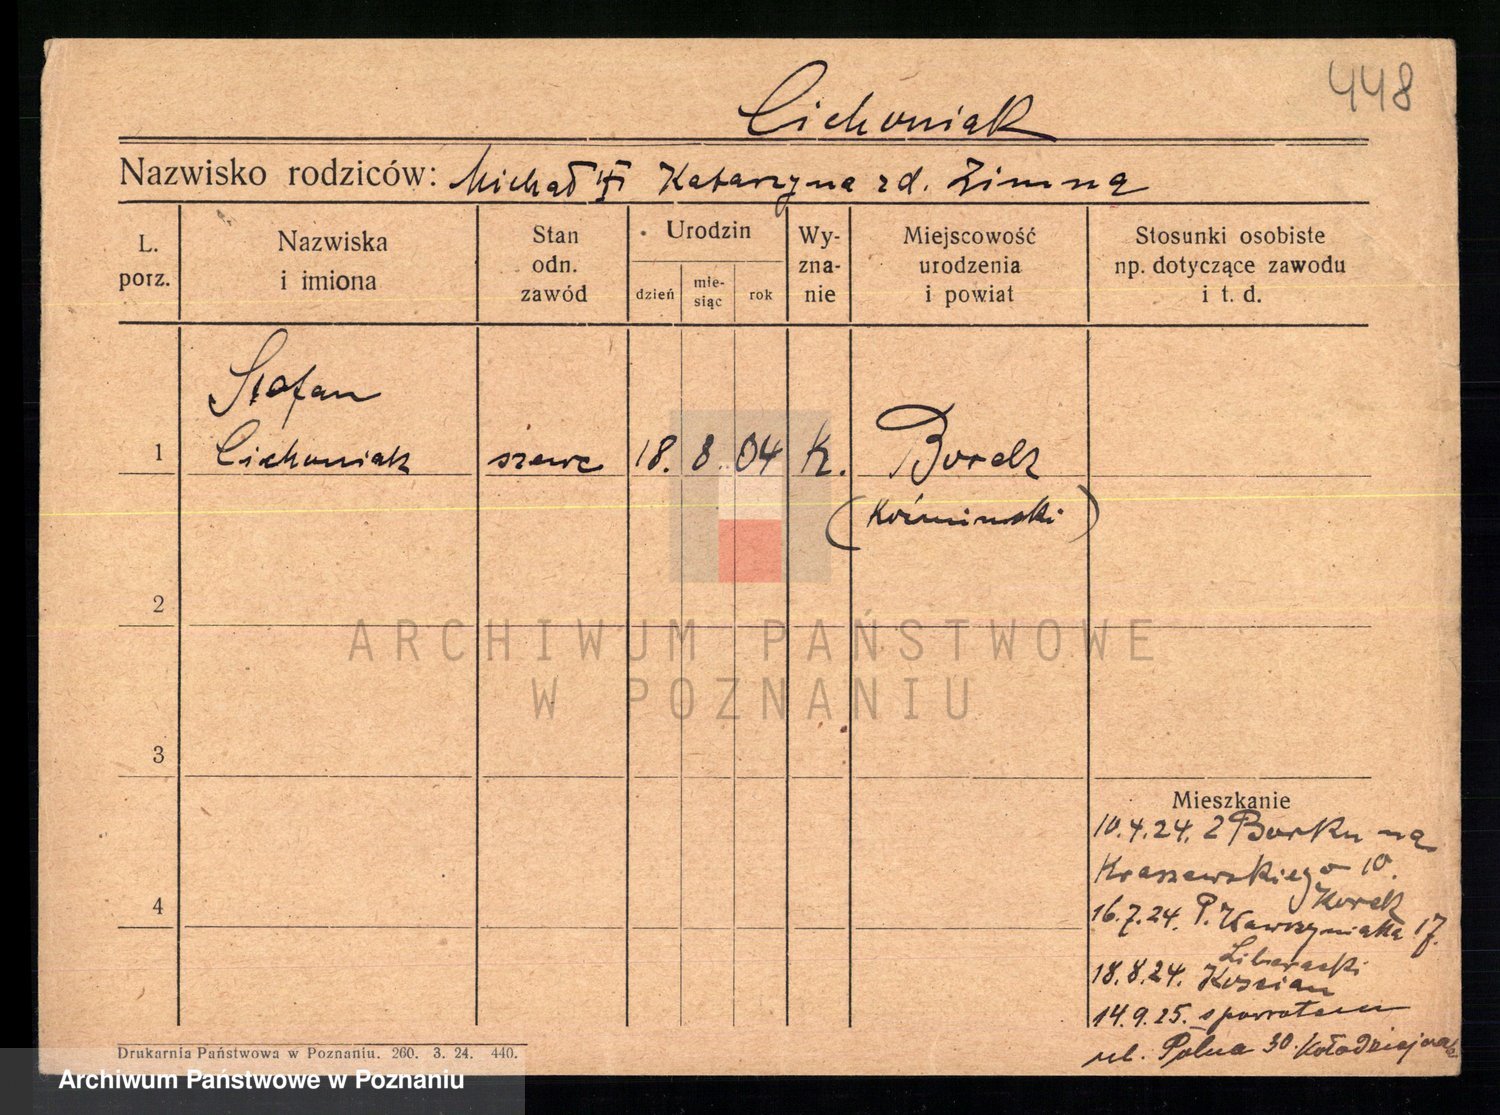 448
Cichoniak
Nazwisko rodziców: Michał i Katarzyna zd. Zimna
L. porz.
Nazwiska i imiona
Stan odn. zawód
Urodzin
dzień
mie-siąc
rok
Wy-zna-nie
Miejscowość urodzenia i powiat
Stosunki osobiste np. dotyczące zawodu i t. d.
Stefan
1 Cichoniak szewc 18. 8. 04 k. Borek
(Koźmiński)
2
ARCHIWUM PAŃSTWOWE
W POZNANIU
3
Mieszkanie
10.4.24. z Borku na
Kraszewskiego 10.
4
16.7.24. P. Wawrzyniaka 17.
18.8.24. Kościan
14.9.25. spowrotem
ul. Polna 30. Kołodziejczak
Drukarnia Państwowa w Poznaniu. 260. 3. 24. 440.
Archiwum Państwowe w Poznaniu